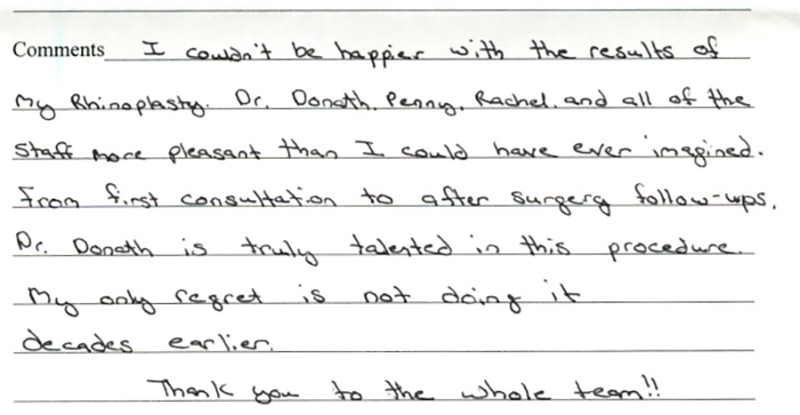 Comments I couldn't be happier with the results of
My Rhinoplasty. Dr. Donath, Penny, Rachel, and all of the
Staff more pleasant than I could have ever imagined.
From first consultation to after surgery follow-ups.
Dr. Donath is truly talented in this procedure.
My only regret is not doing it
decades earlier.
Thank you to the whole team!!